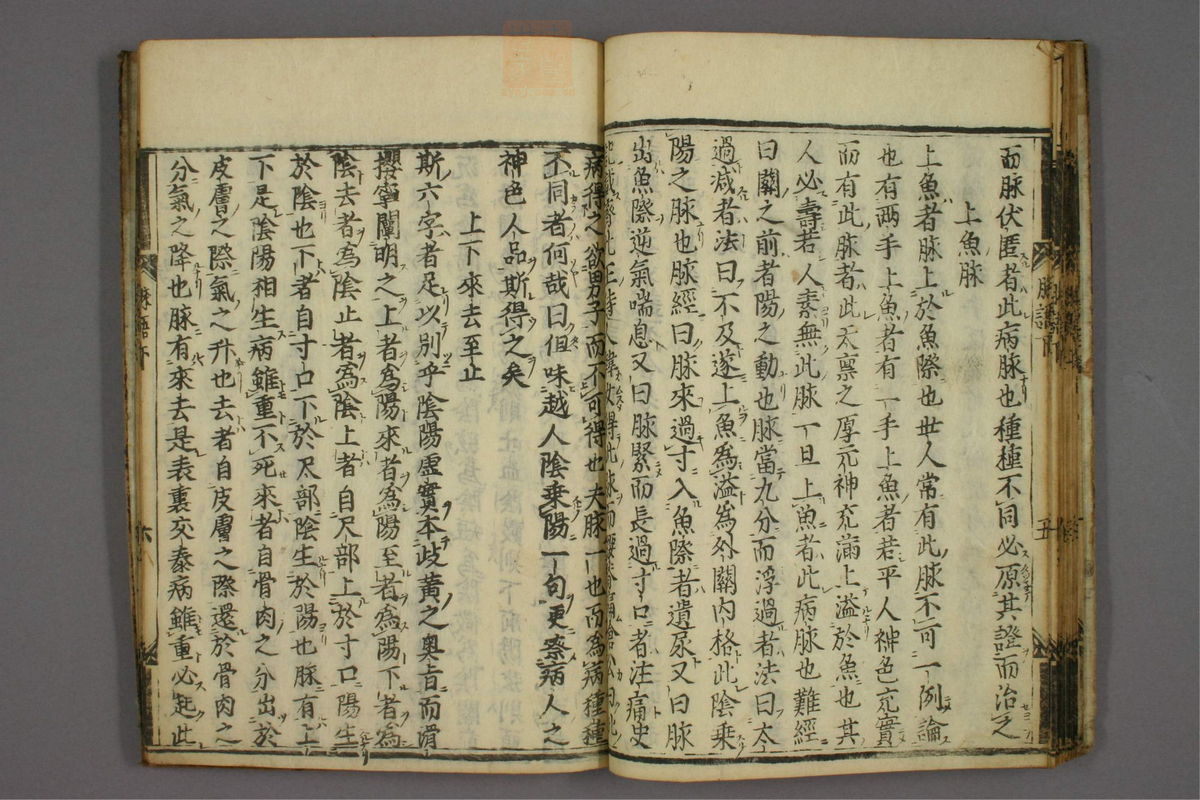 而脉伏匿者此病脉也種種不同必原其證而治之
上魚脉
上魚者脉上於魚際也世人常有此脉不可一例論
也有兩手上魚者有一手上魚者若平人神色充實
而有此脉者此天禀之厚元神充滿上溢於魚也其
人必壽若人素無此脉一旦上魚者此病脉也難經
曰關之前者陽之動也脉當九分而浮過者法曰太
過减者法曰不及遂上魚為溢為外關内格此陰乗
陽之脉也脉經曰脉來過寸入魚際者遺尿又曰脉
出魚際逆氣喘息又曰脉緊而長過寸口者注痛史
病得之欲男子而不可得也夫脉一也而為病種種
不同者何哉曰但味越人陰乗陽一句更察病人之
神色人品斯得之矣
上下來去至止
斯六字者足以别乎陰陽虚實本歧黄之奥旨而滑
攖寧闡明之上者為陽來者為陽至者為陽下者為
陰去者為陰止者為陰上者自尺部上於寸口陽生
於陰也下者自寸口下於尺部陰生於陽也脉有上
下是陰陽相生病雖重不死來者自骨肉之分出於
皮膚之際氣之升也去者自皮膚之際還於骨肉之
分氣之降也脉有來去是表裏交泰病雖重必起此